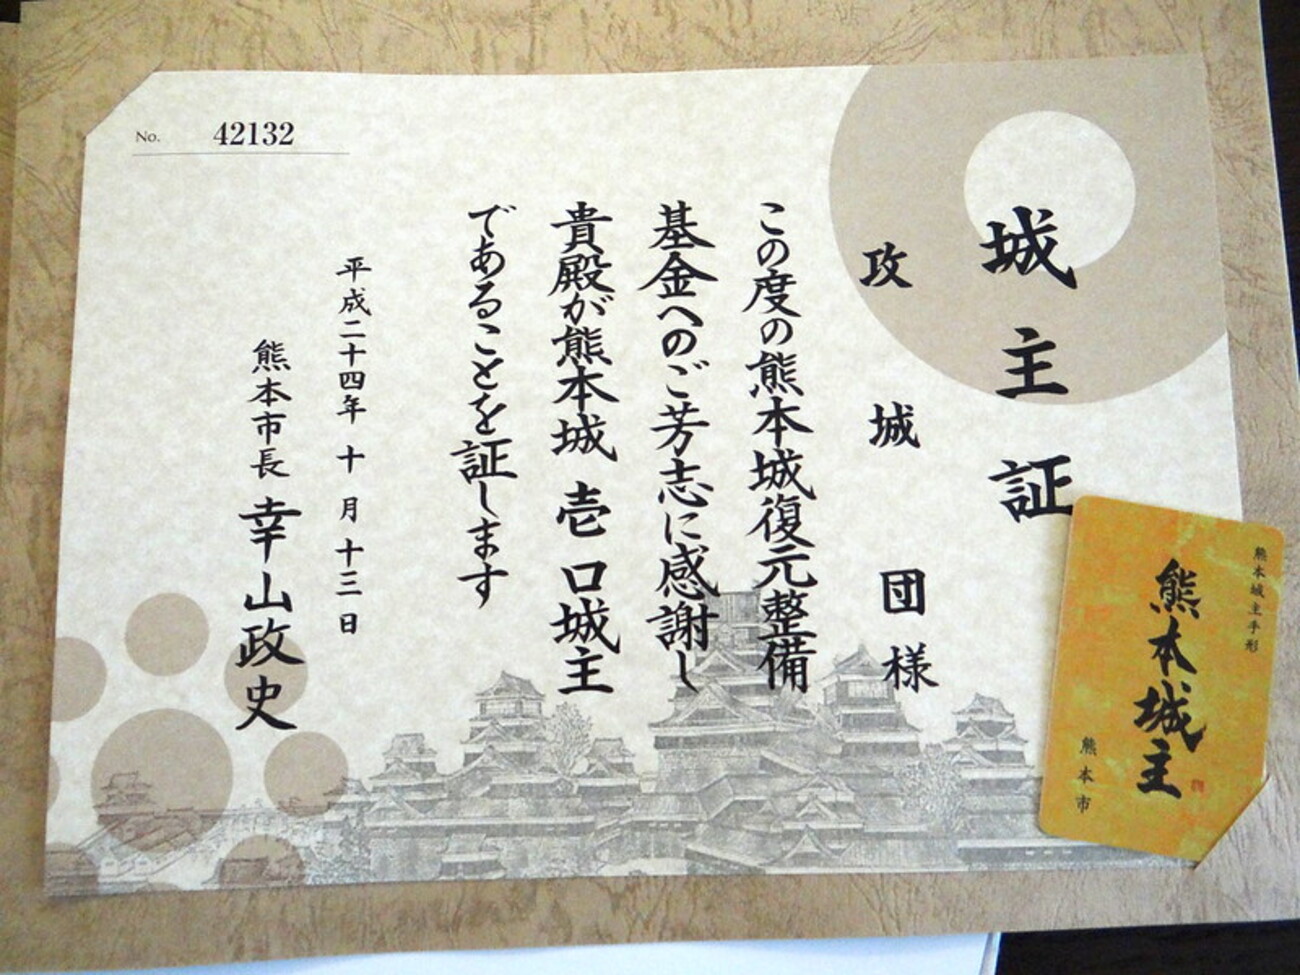 No. 42132
城主証
攻城団様
この度の熊本城復元整備
基金へのご芳志に感謝し
貴殿が熊本城 壱 口城主
であることを証します
平成二十四年 十 月 十三 日
熊本市長 幸山政史
熊本城主手形
熊本城主
熊本市